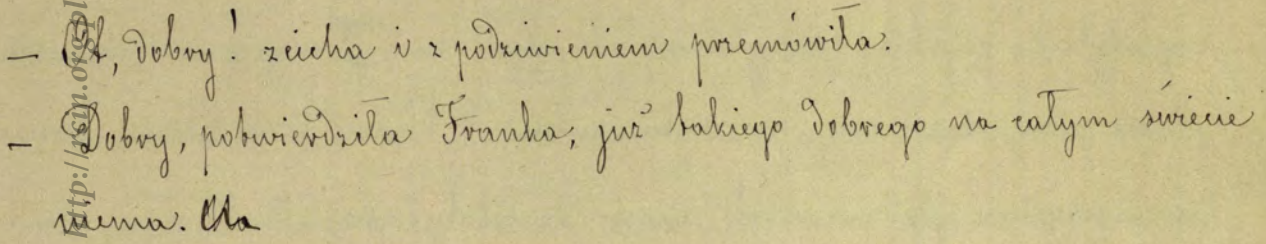 — Ot, dobry! zcicha i z podziwieniem przemówiła.
— Dobry, potwierdziła Franka, już takiego dobrego na całym świecie
niema. Ale
http://rcin.org.pl